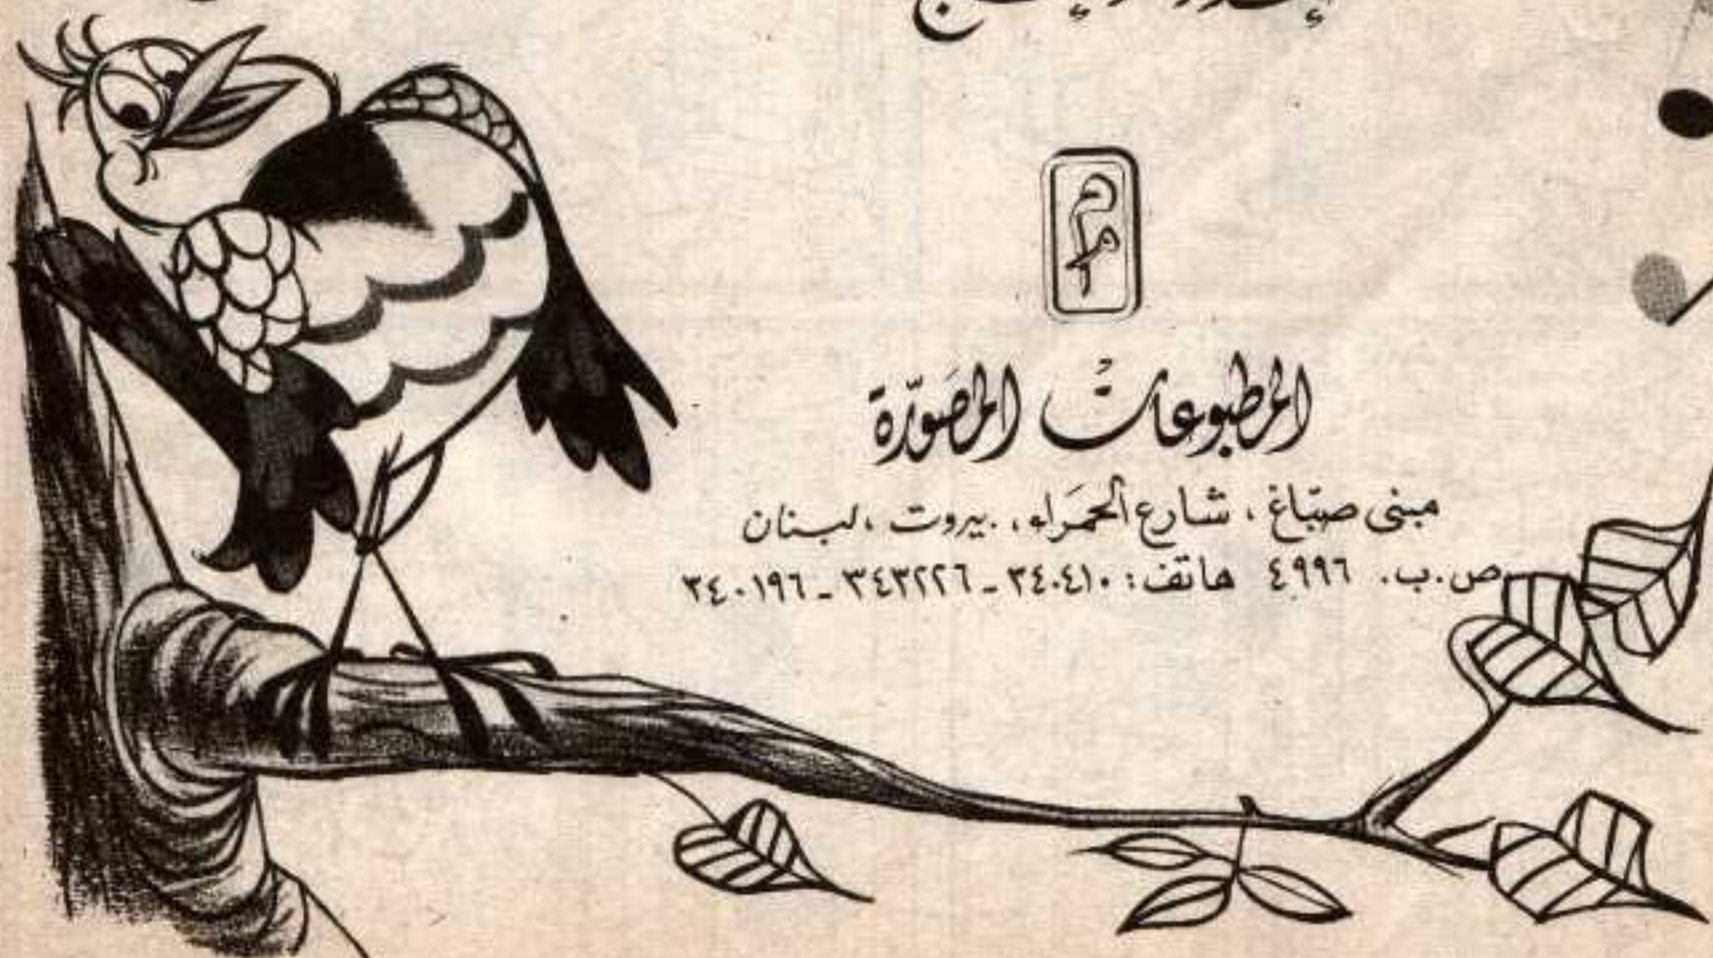 المطبوعات المصَوّرة
مبنى صبّاغ، شارع الحَمَراء، بيروت، لبنان
ص.ب. ٤٩٩٦ هاتف: ٣٤٠٤١٠ - ٣٤٣٢٢٦ - ٣٤٠١٩٦